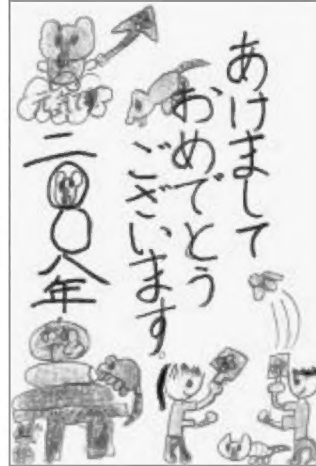 あけまして
おめでとう
ございます。
二〇〇八年